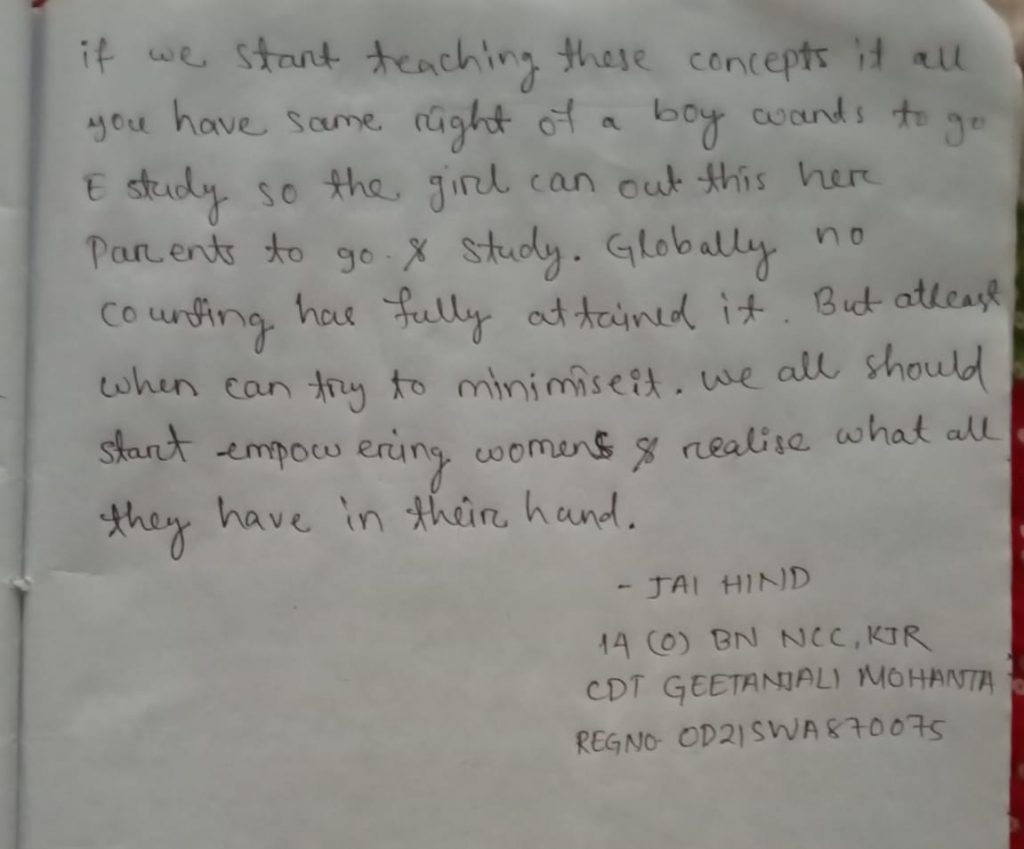 if we start teaching these concepts it all
you have same right of a boy wands to go
E study so the girl can out this her
Parents to go & study. Globally no
counting has fully attained it. But atleast
when can try to minimise it. we all should
start empowering womens & realise what all
they have in their hand.
- JAI HIND
14 (O) BN NCC, KJR
CDT GEETANJALI MOHANTA
REGNO OD21SWA870075